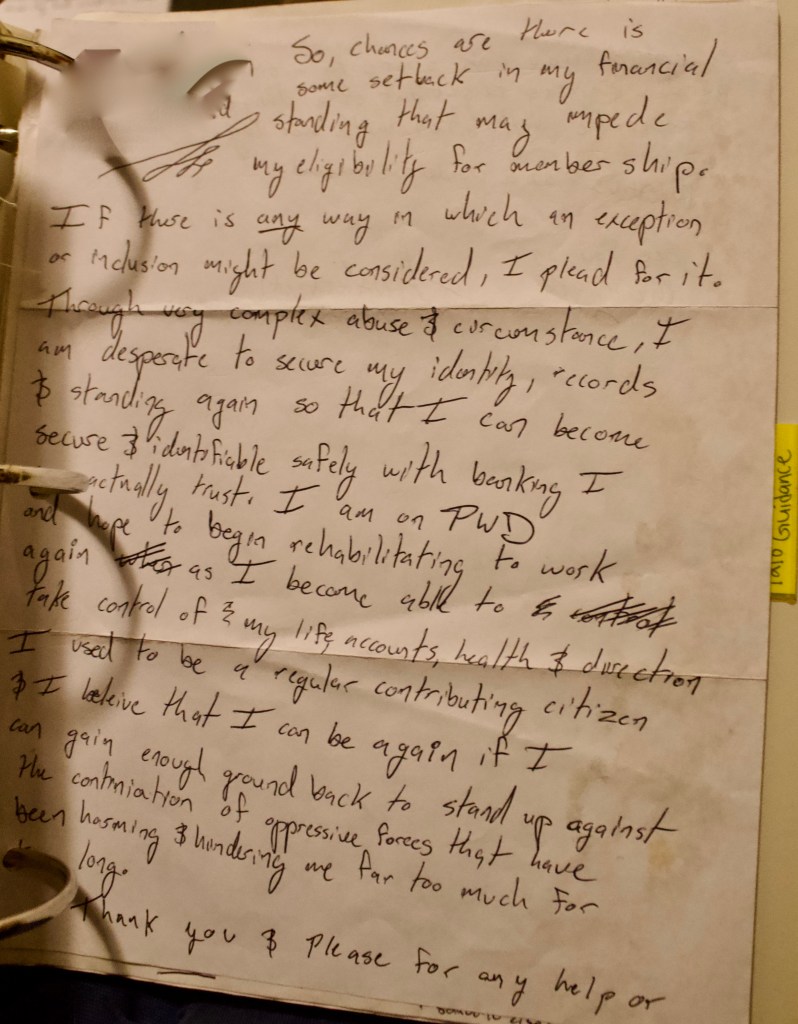 So, chances are there is
some setback in my financial
standing that may impede
my eligibility for member ship.
If there is any way in which an exception
or inclusion might be considered, I plead for it.
Through very complex abuse & circumstance, I
am desperate to secure my identity, records
& standing again so that I can become
secure & identifiable safely with banking I
actually trust. I am on PWD
and hope to begin rehabilitating to work
again as I become able to &
take control of & my life, accounts, health & direction
I used to be a regular contributing citizen
& I beleive that I can be again if I
can gain enough ground back to stand up against
the continiation of oppressive forces that have
been harming & hindering me far too much for
long.
Thank you & Please for any help or
Guidance